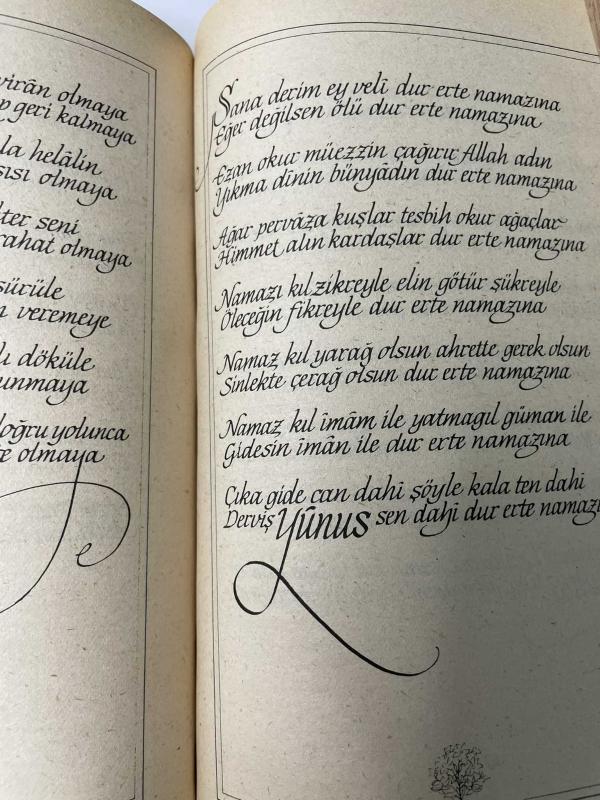 virân olmaya
geri kalmaya
la helâlin
sısı olmaya
ter seni
rahat olmaya
sürüle
n veremeye
lı döküle
unmaya
doğru yolunca
te olmaya
Sana derim ey velî dur erte namazına
Eğer değilsen ölü dur erte namazına
Ezan okur müezzin çağırır Allah adın
Yıkma dînin bünyâdın dur erte namazına
Ağar pervâza kuşlar tesbih okur ağaçlar
Himmet alın kardaşlar dur erte namazına
Namazı kıl zikreyle elin götür şükreyle
Öleceğin fikreyle dur erte namazına
Namaz kıl yarağ olsun ahrette gerek olsun
Sinlekte çerağ olsun dur erte namazına
Namaz kıl îmâm ile yatmagıl güman ile
Gidesin îmân ile dur erte namazına
Çıka gide can dahî şöyle kala ten dahî
Derviş Yûnus sen dahî dur erte namazı